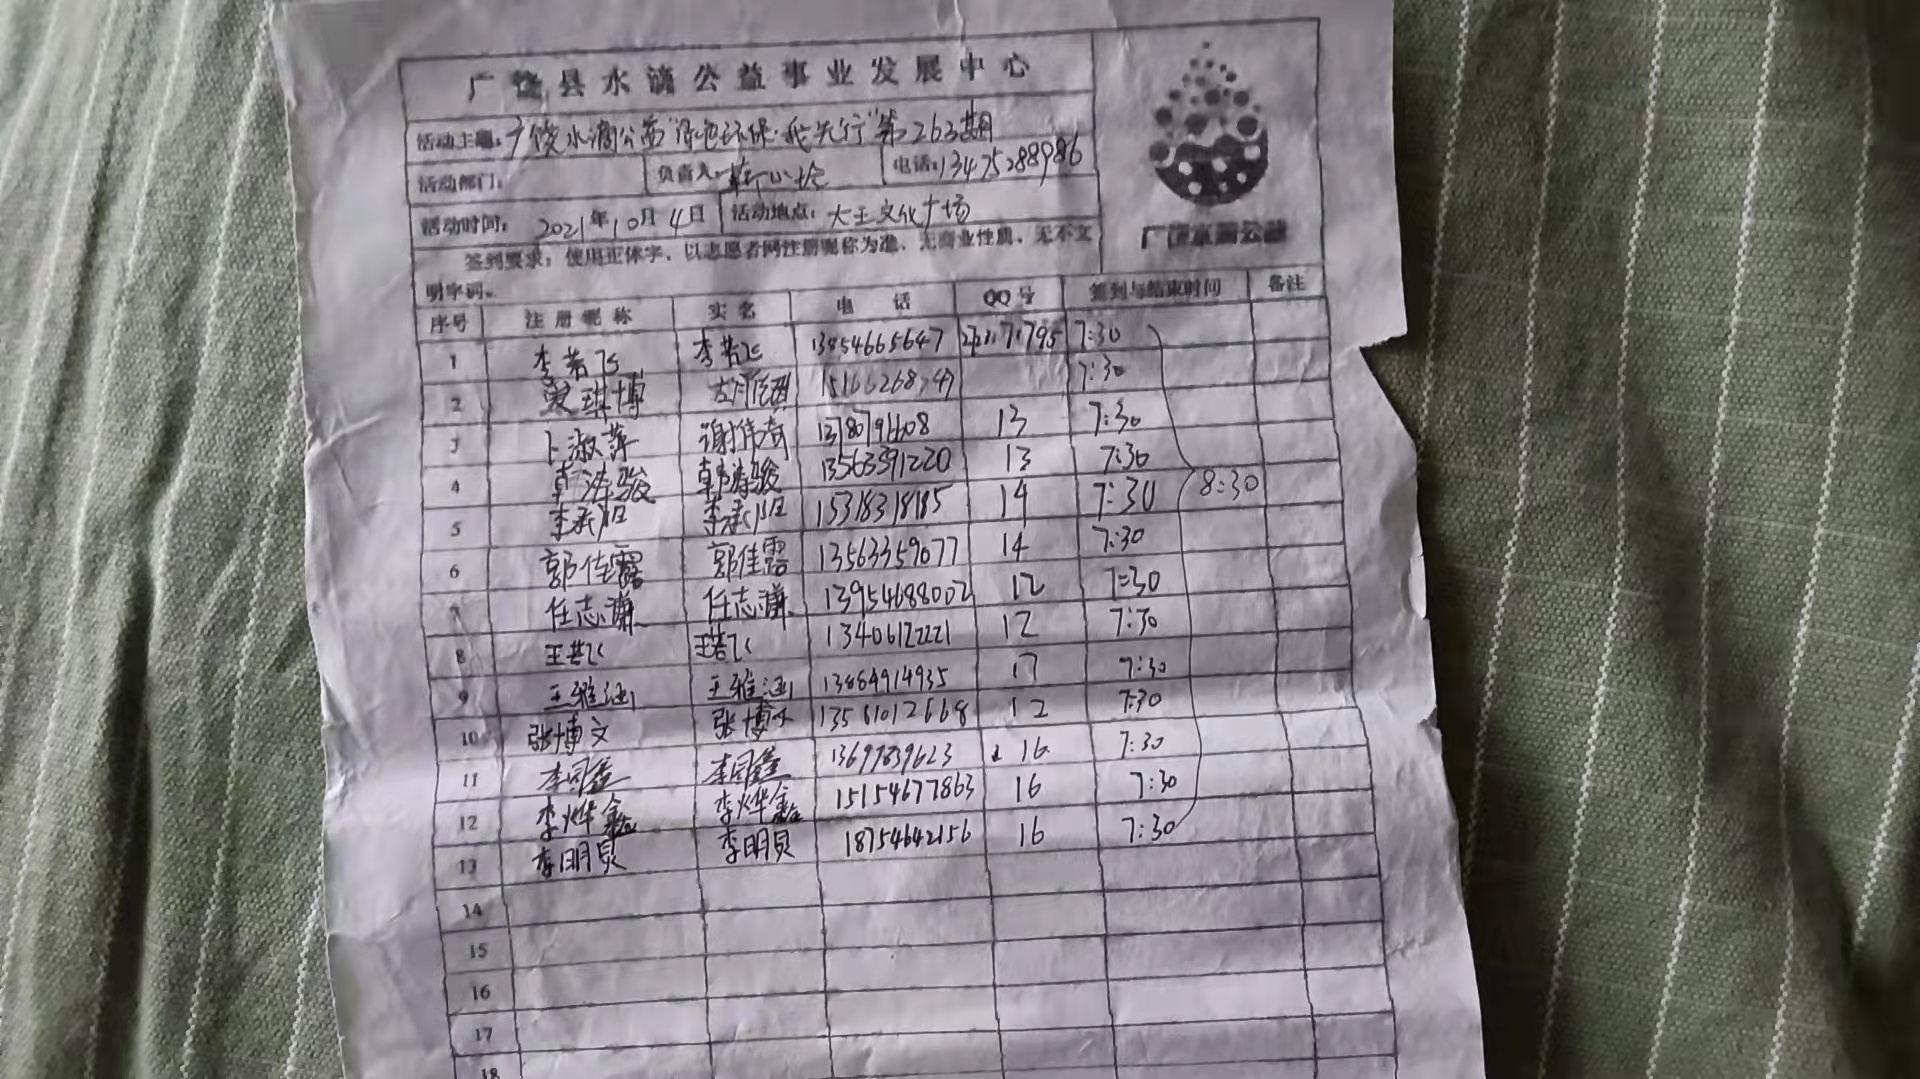 广饶县水滴公益事业发展中心
活动主题：广饶水滴公益"绿色环保·我先行"第263期
活动部门： 负责人： 电话：13475288986
活动时间： 2021年10月4日 活动地点：大王文化广场
签到要求：使用正体字，以志愿者网注册昵称为准，无商业性质，无不文
明字词。
广饶水滴公益
序号 注册昵称 实名 电话 QQ号 签到与结束时间 备注
1 李若飞 李若飞 13954665647 7:30
2 琪博 15166268747 7:30
3 卜淑萍 谢伟奇 13 7:30
4 韩涛骏 韩涛骏 13563591220 13 7:30
5 李承阳 李承阳 15318318185 14 7:30 8:30
6 郭佳露 郭佳露 13563359077 14 7:30
7 任志潇 任志潇 13954688002 12 7:30
8 王若飞 王若飞 13406122221 12 7:30
9 王雅涵 王雅涵 13864914935 17 7:30
10 张博文 张博文 13561012668 12 7:30
11 李同鑫 李同鑫 13699839623 16 7:30
12 李烨鑫 李烨鑫 15154677863 16 7:30
13 李明贝 李明贝 18754642156 16 7:30
14
15
16
17
18